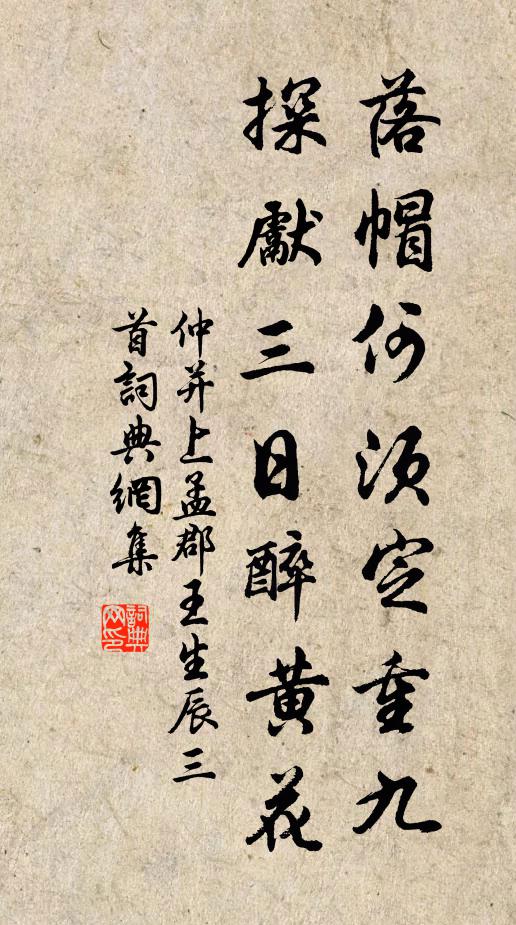 落帽何須定重九
探獻三日醉黄花
仲并上孟郡王生辰三
首詞典網集
詞典網印